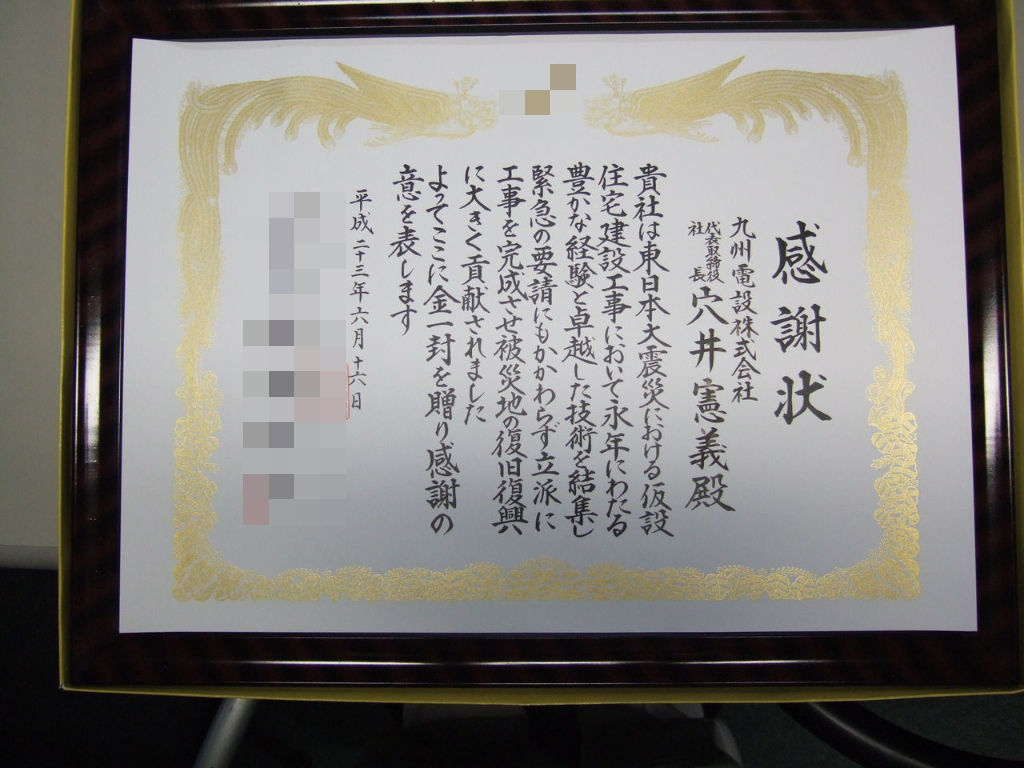 感謝状
九州電設株式会社
代表取締役
社長
穴井憲義殿
貴社は東日本大震災における仮設
住宅建設工事において永年にわたる
豊かな経験と卓越した技術を結集し
緊急の要請にもかかわらず立派に
工事を完成させ被災地の復旧復興
に大きく貢献されました
よってここに金一封を贈り感謝の
意を表します
平成二十三年六月十六日